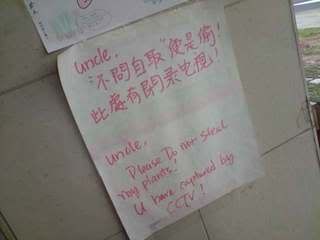 uncle,
不問自取"便是偷!
此處有閉素电視!
uncle,
Please Do not steal
my plants!
U have captured by
CCTV!